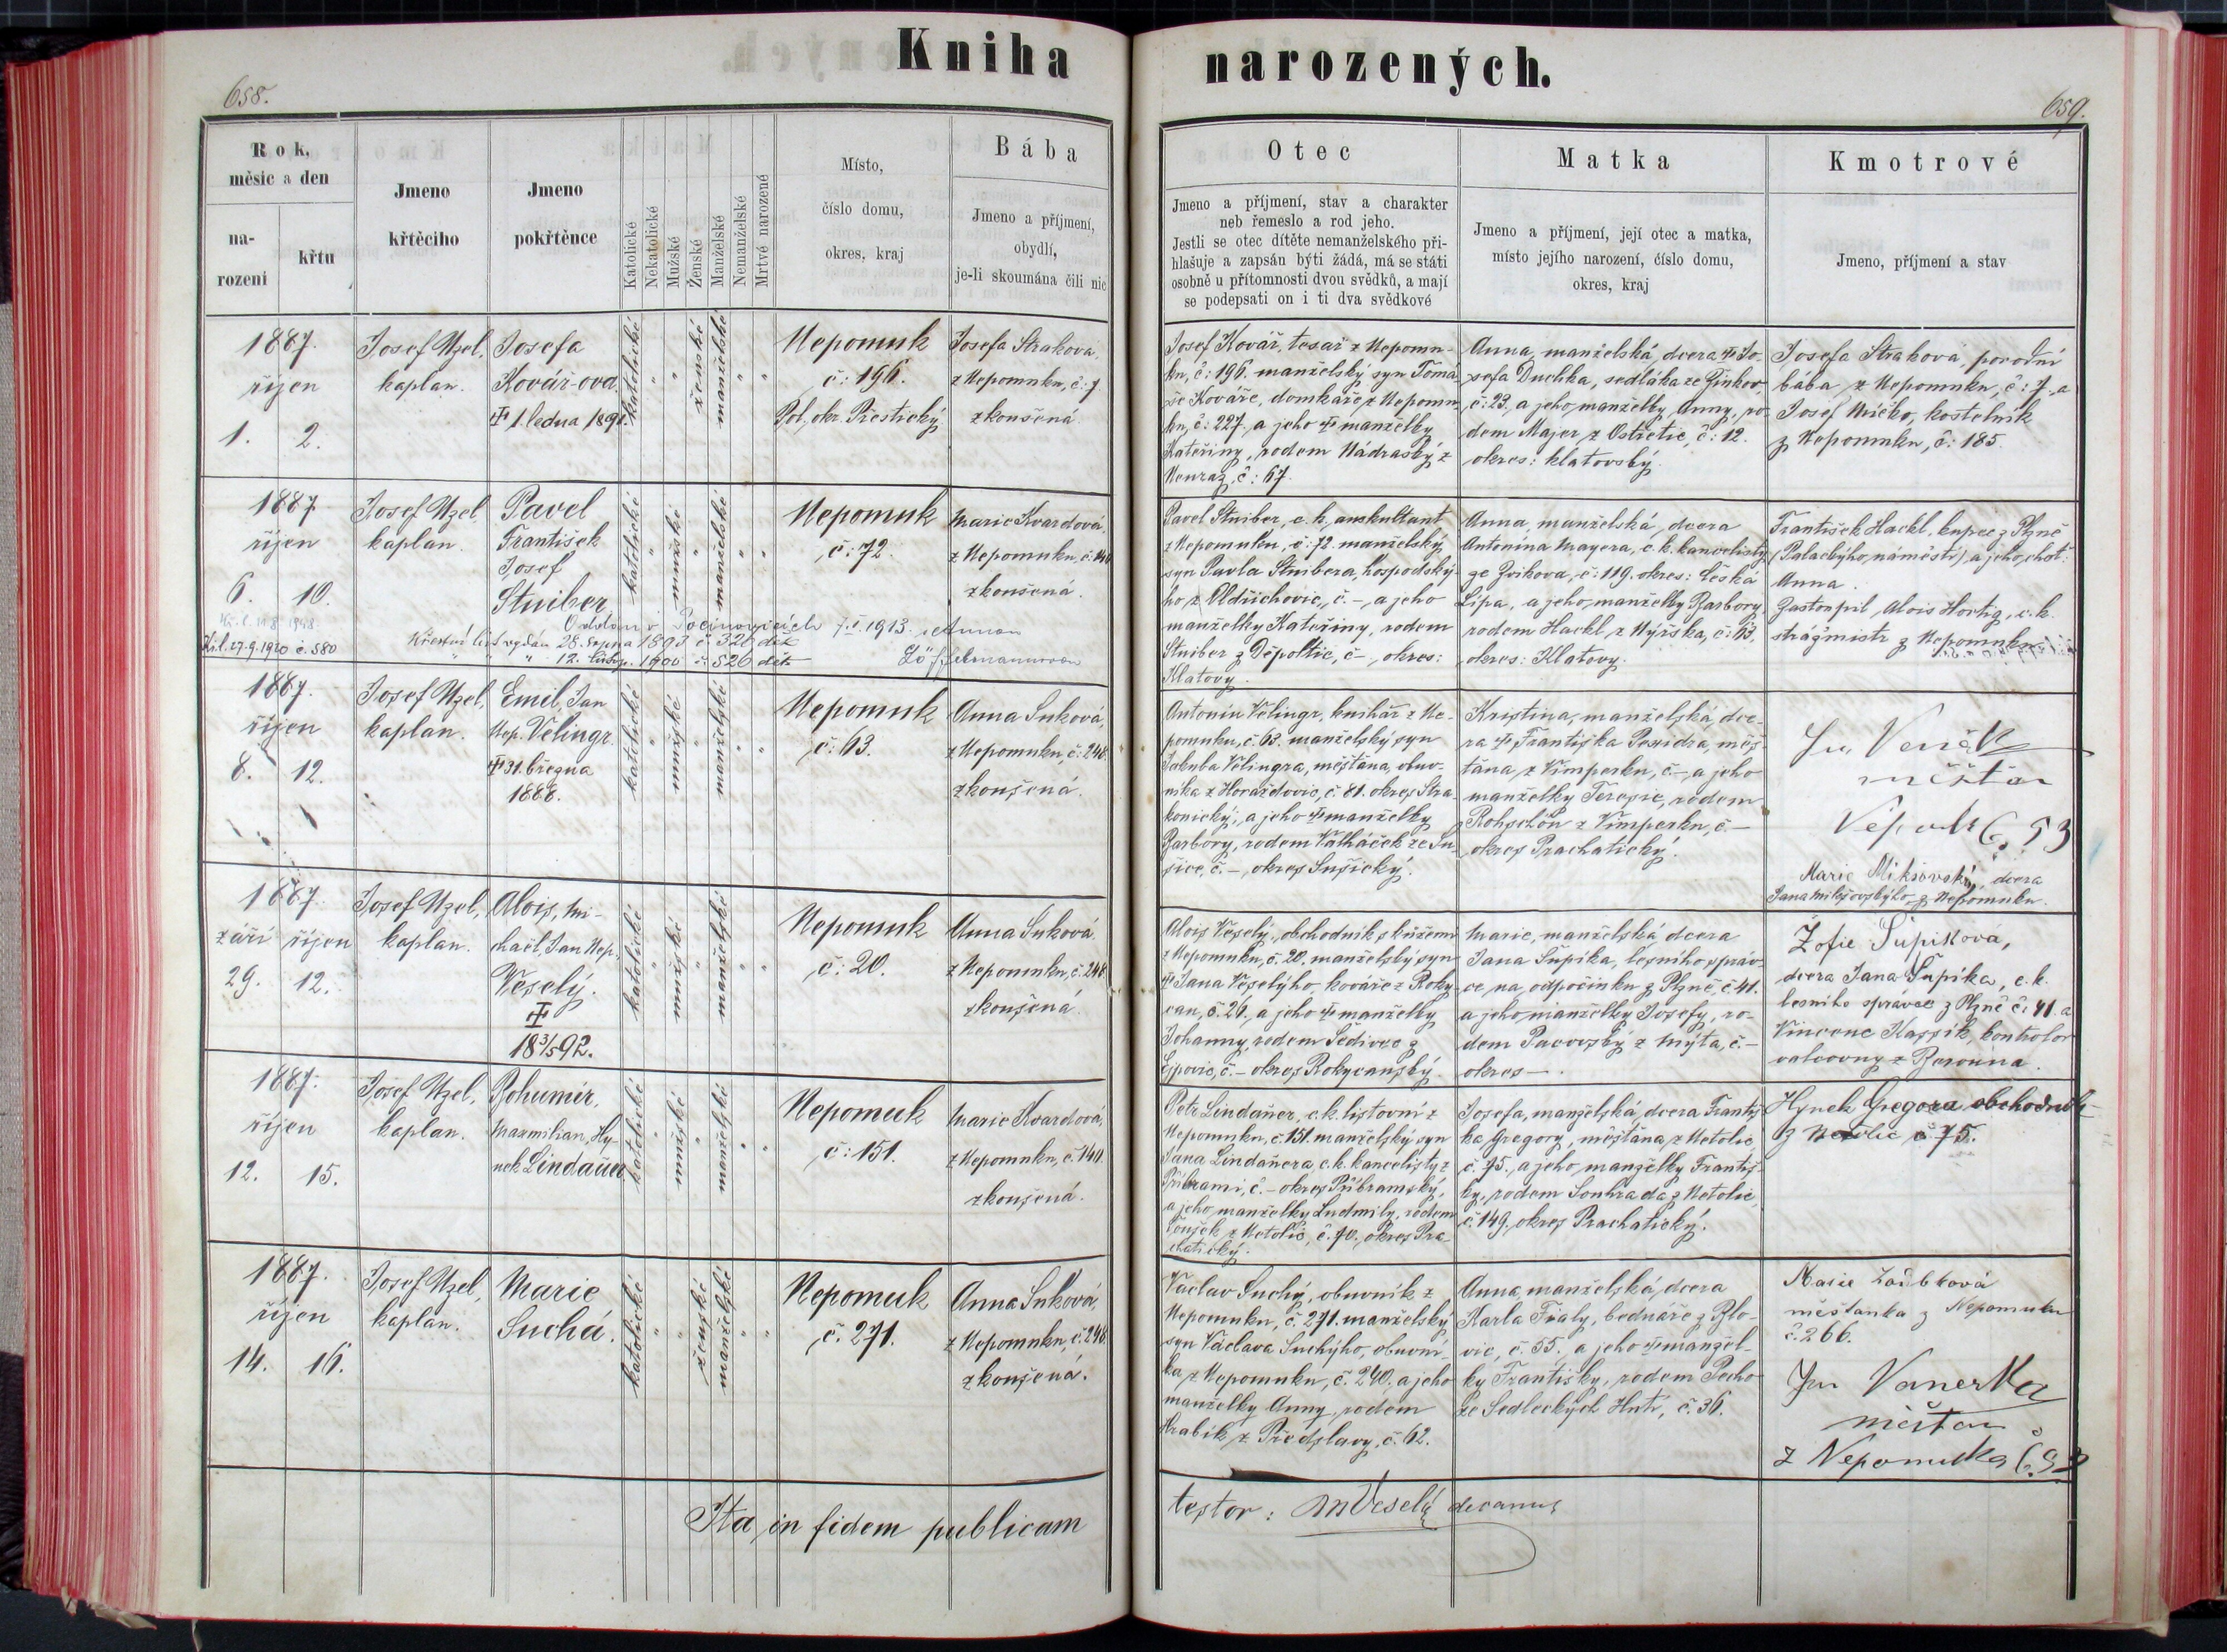 Kniha narozených.
658.
659.
Rok, měsíc a den
na-
rozeni
křtu
Jmeno
křtěcího
Jmeno
pokřtěnce
Katolické
Nekatolické
Mužské
Ženské
Manželské
Nemanželské
Mrtvé narozené
Místo,
číslo domu,
okres, kraj
Bába
Jmeno a příjmení,
obydlí,
je-li skoumána čili nic
Otec
Jmeno a příjmení, stav a charakter
neb řemeslo a rod jeho.
Jestli se otec dítěte nemanželského při-
hlašuje a zapsán býti žádá, má se státi
osobně u přítomnosti dvou svědků, a mají
se podepsati on i ti dva svědkové
Matka
Jmeno a příjmení, její otec a matka,
místo jejího narození, číslo domu,
okres, kraj
Kmotrové
Jmeno, příjmení a stav
1887.
říjen
1. 2.
Josef Uzel,
kaplan.
Josefa
Kovář-ova
1 ledna 1891.
katolické
ženské
manželské
Nepomuk
č: 196.
Pol. okr. Přestický
Josefa Strakova
z Nepomuku, č: 7
zkoušená
Josef Kovář, tesař z Nepomu-
ku, č: 196. manželský syn Tomá-
še Kováře, domkáře z Nepomu-
ku, č: 227. a jeho manželky
Kateřiny, rodem Nádraský z
Neuraz, č: 67.
Anna, manželská, dcera Jo-
sefa Duchka, sedláka ze Žinkov,
č: 23, a jeho manželky Anny, ro-
dem Majer, z Ostřetic, č: 12.
okres: klatovský.
Josefa Straková, porodní
bába z Nepomuku, č: 7. a
Josef Míčko, kostelník
z Nepomuku, č: 185.
1887
říjen
6. 10.
Josef Uzel
kaplan.
Pavel
František
Josef
Stuiber
katolické
mužské
manželské
Nepomuk
č: 72.
Marie Kvardová,
z Nepomuku, č: 140
zkoušená.
Kř. l. 27.9.1920 č. 580
7. 1913. s Annou
Křestní list vydán 28. srpna 1893 č. 320 dětk
12. listop. 1900 č. 526 dětk
Pavel Stuiber, c. k. auskultant
z Nepomuku, č: 72. manželský
syn Pavla Stuibera, hospodský-
ho z Oldřichovic, č. –, a jeho
manželky Kateřiny, rodem
Stuiber z Děpoltic, č –, okres:
Klatovy.
Anna, manželská, dcera
Antonína Mayera, c. k. kancelisty
ze Zvikova, č: 119. okres: Česká
Lípa, a jeho manželky Barbory,
rodem Hackl, z Nýrska, č: 63.
okres: Klatovy.
František Hackl, kupec z Plzně
(Palackýho náměstí) a jeho choť
Anna.
Zastoupil Alois Hortig, c. k.
strážmistr z Nepomuku
1887.
říjen
8. 12.
Josef Uzel,
kaplan.
Emil, Jan
Nep. Velingr.
31. března
1888.
katolické
mužské
manželské
Nepomuk
č: 63.
Anna Suková,
z Nepomuku, č: 248.
zkoušená.
Antonín Velingr, knihař z Ne-
pomuku, č: 63. manželský syn
Jakuba Velingra, měšťana, obuv-
níka z Horažďovic, č. 81. okres Stra-
konický, a jeho manželky
Barbory, rodem ze Su-
šice, č. –, okres Sušický.
Kristina, manželská, dce-
ra Františka měš-
ťana z Vimperku, č. –, a jeho
manželky Teresie, rodem
z Vimperku, č. –
okres Prachatický.
měšťan
č. 53
Marie Mikšovská, dcera
Jana Mikšovskýho z Nepomuku.
1887.
září říjen
29. 12.
Josef Uzel,
kaplan.
Alois, Mi-
chael, Jan Nep.
Veselý.
18 3/5 92.
katolické
mužské
manželské
Nepomuk
č: 20.
Anna Suková
z Nepomuku, č. 248
zkoušená.
Alois Veselý, obchodník s kůžemi
z Nepomuku, č. 20. manželský syn
Jana Veselýho, kováře z Roky-
can, č. 26, a jeho manželky
Johanny, rodem Šedivec z
Ejpovic, č. – okres Rokycanský.
Marie, manželská, dcera
Jana Šupíka, lesního správ-
ce na odpočinku z Plzně, č. 41.
a jeho manželky Josefy, ro-
dem Pacovský z Mýta, č. –
okres – .
Žofie Šupikova,
dcera Jana Šupíka, c. k.
lesního správce z Plzně č: 41. a
Vincenc Kassík, kontrolor
válcovny z Berouna.
1887.
říjen
12. 15.
Josef Uzel,
kaplan.
Bohumír,
Maxmilian, Hy-
nek Lindauer
katolické
mužské
manželské
Nepomuk
č: 151.
Marie Kvardová,
z Nepomuku, č. 140.
zkoušená.
Petr Lindauer, c. k. listovní z
Nepomuku, č. 151. manželský syn
Jana Lindauera, c. k. kancelisty z
Příbrami, č. – okres Příbramský,
a jeho manželky Ludmily, rodem
z Netolic, č. 70., okres Pra-
chatický.
Josefa, manželská, dcera Františ-
ka Gregory, měšťana z Netolic,
č. 75., a jeho manželky Františ-
ky, rodem Souhrada z Netolic,
č. 149, okres Prachatický.
Hynek Gregora obchodník
z Netolic č. 75.
1887.
říjen
14. 16.
Josef Uzel,
kaplan.
Marie
Suchá.
katolické
ženské
manželské
Nepomuk
č. 271.
Anna Suková,
z Nepomuku, č. 248
zkoušená.
Václav Suchý, obuvník z
Nepomuku, č. 271. manželský
syn Václava Suchýho, obuvní-
ka z Nepomuku, č. 240. a jeho
manželky Anny, rodem
Hrabík z Předslavy, č. 62.
Anna, manželská, dcera
Karla Fialy, bednáře z Blo-
vic, č. 55., a jeho manžel-
ky Františky, rodem Pecho
ze Sedleckých Hutí, č. 36.
Marie
měšťanka z Nepomuku
č. 266.
Jan Vanerka
měšťan
z Nepomuka
Ita in fidem publicam
testor: Veselý decanus